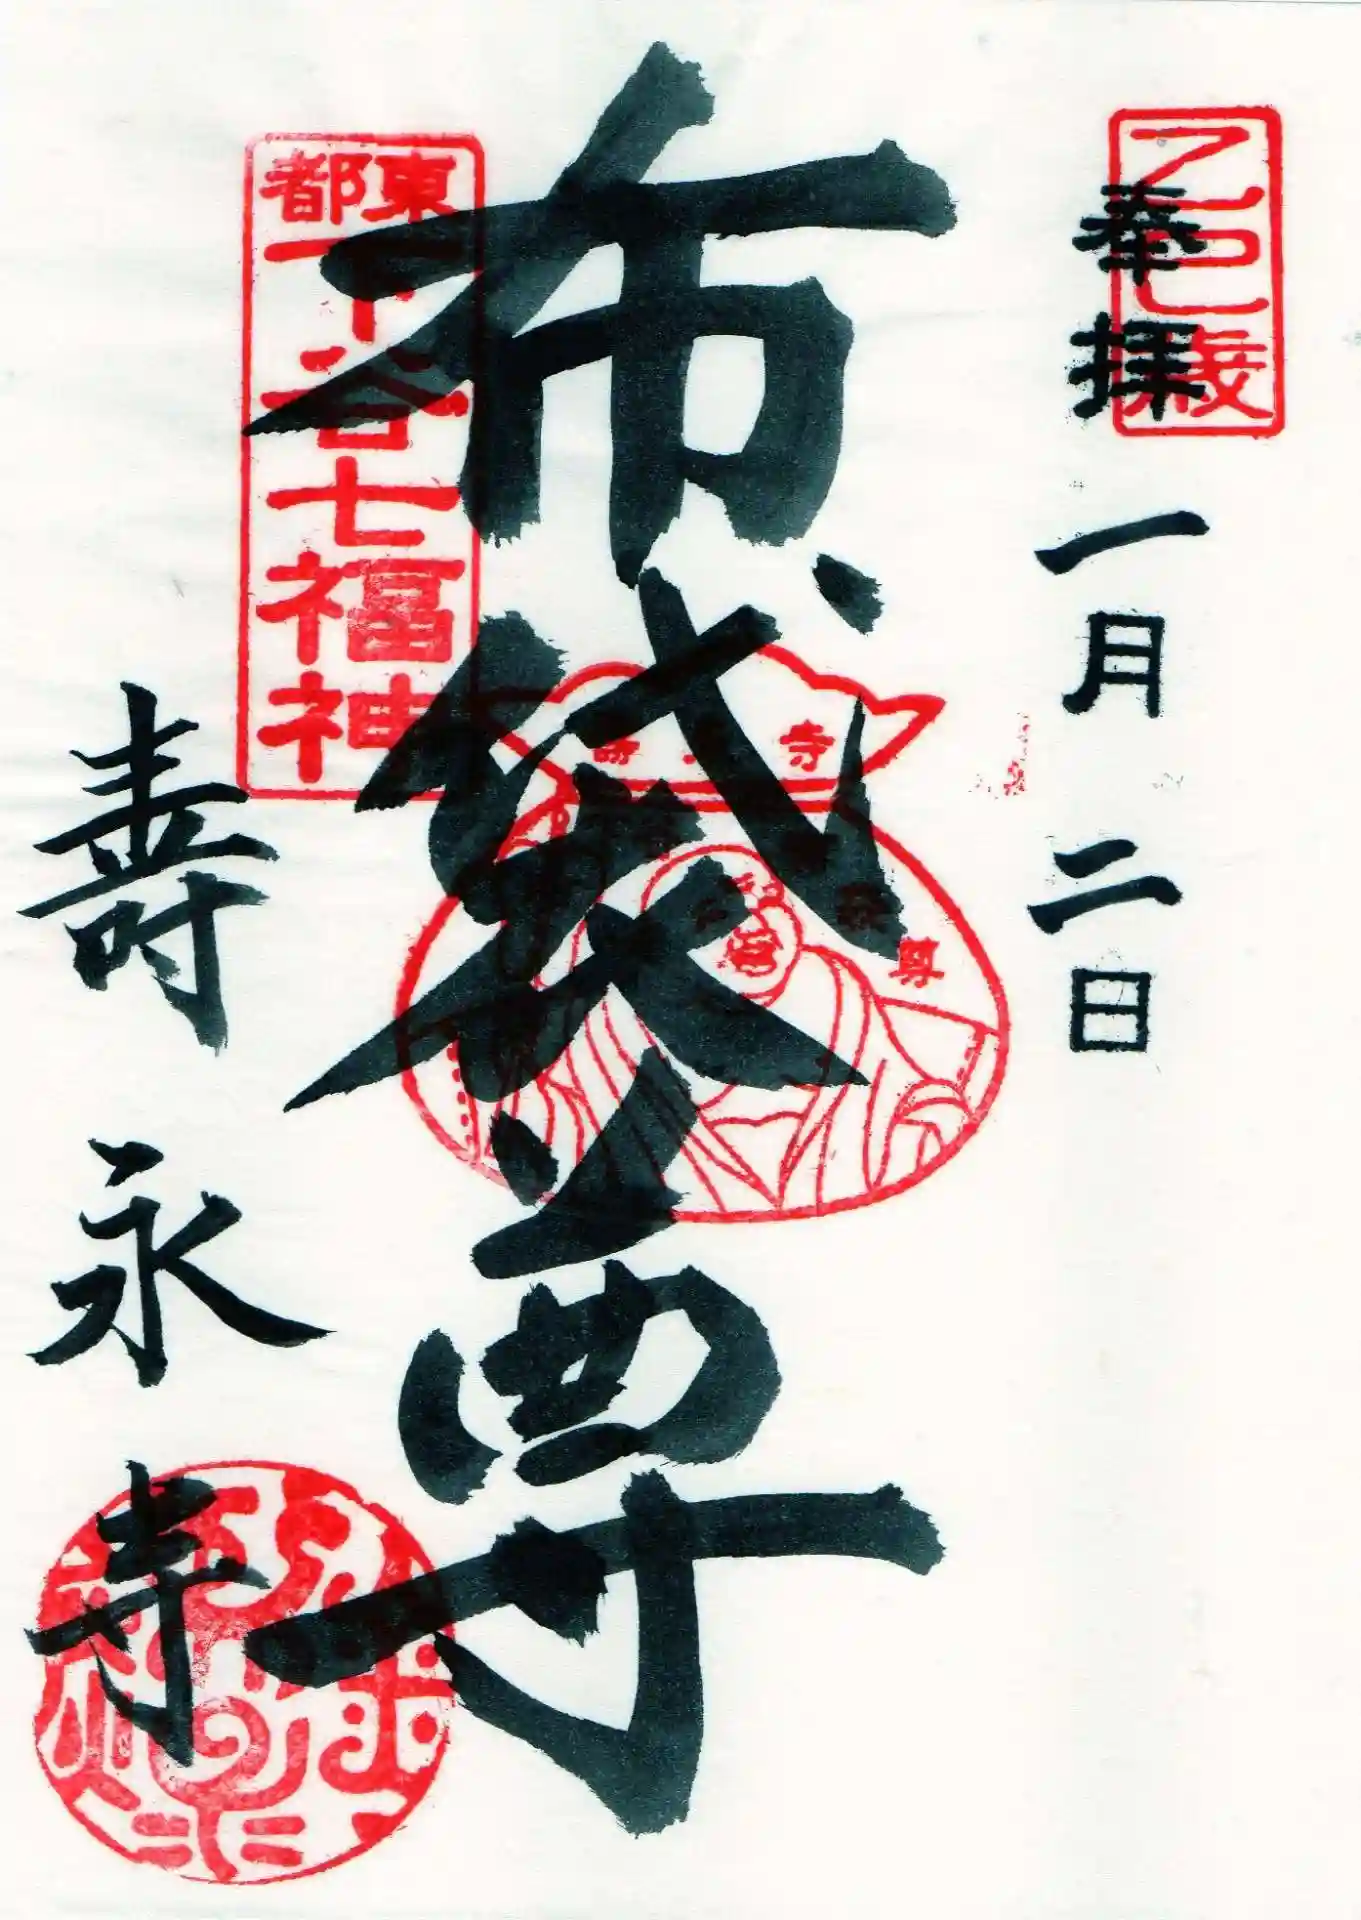 乙巳歳
奉拝
一月二日
布袋尊
東都
下谷七福神
寺
尊
壽永寺